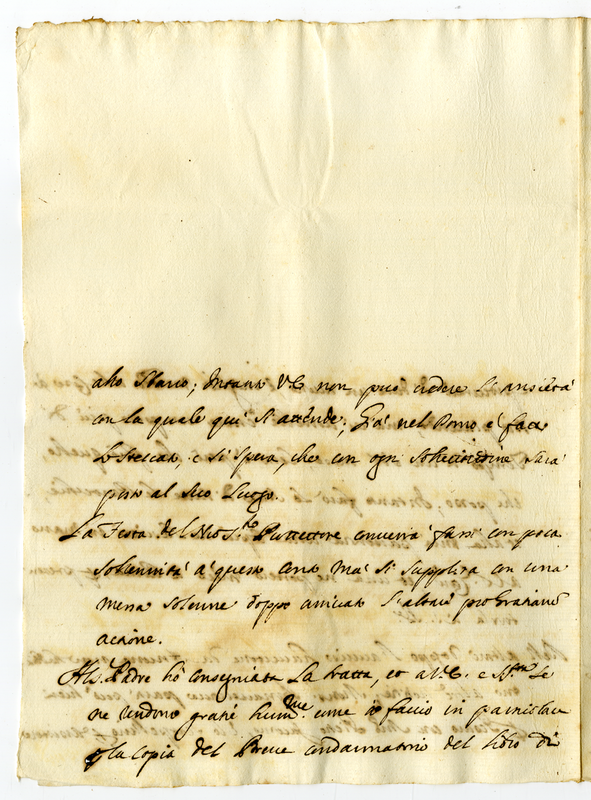 alto Mario; Intanto V E non può credere l'ansietà
con la quale quì si attende; Già nel Domo è fatto
lo steccato, e si spera, che con ogni sollecitudine sarà
posto al suo Luogo.
La Festa del Nro S.to Protettore converrà farsi con poca
solennità à questo anno mà si supplirà con una
messa solenne doppo arrivato l'altare pro gratiarũ
actione.
Al P. Padre hò consegniata la tratta, et a V.E. e
ne rendono gratie hum.me come io faccio in particolare
la Copia del Breve condannatorio del libro di